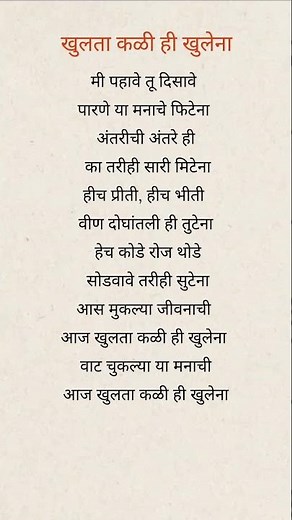 खुलता कळी ही खुलेना
मी पहावे तू दिसावे
पारणे या मनाचे फिटेना
अंतरीची अंतरे ही
का तरीही सारी मिटेना
हीच प्रीती, हीच भीती
वीण दोघांतली ही तुटेना
हेच कोडे रोज थोडे
सोडवावे तरीही सुटेना
आस मुकल्या जीवनाची
आज खुलता कळी ही खुलेना
वाट चुकल्या या मनाची
आज खुलता कळी ही खुलेना